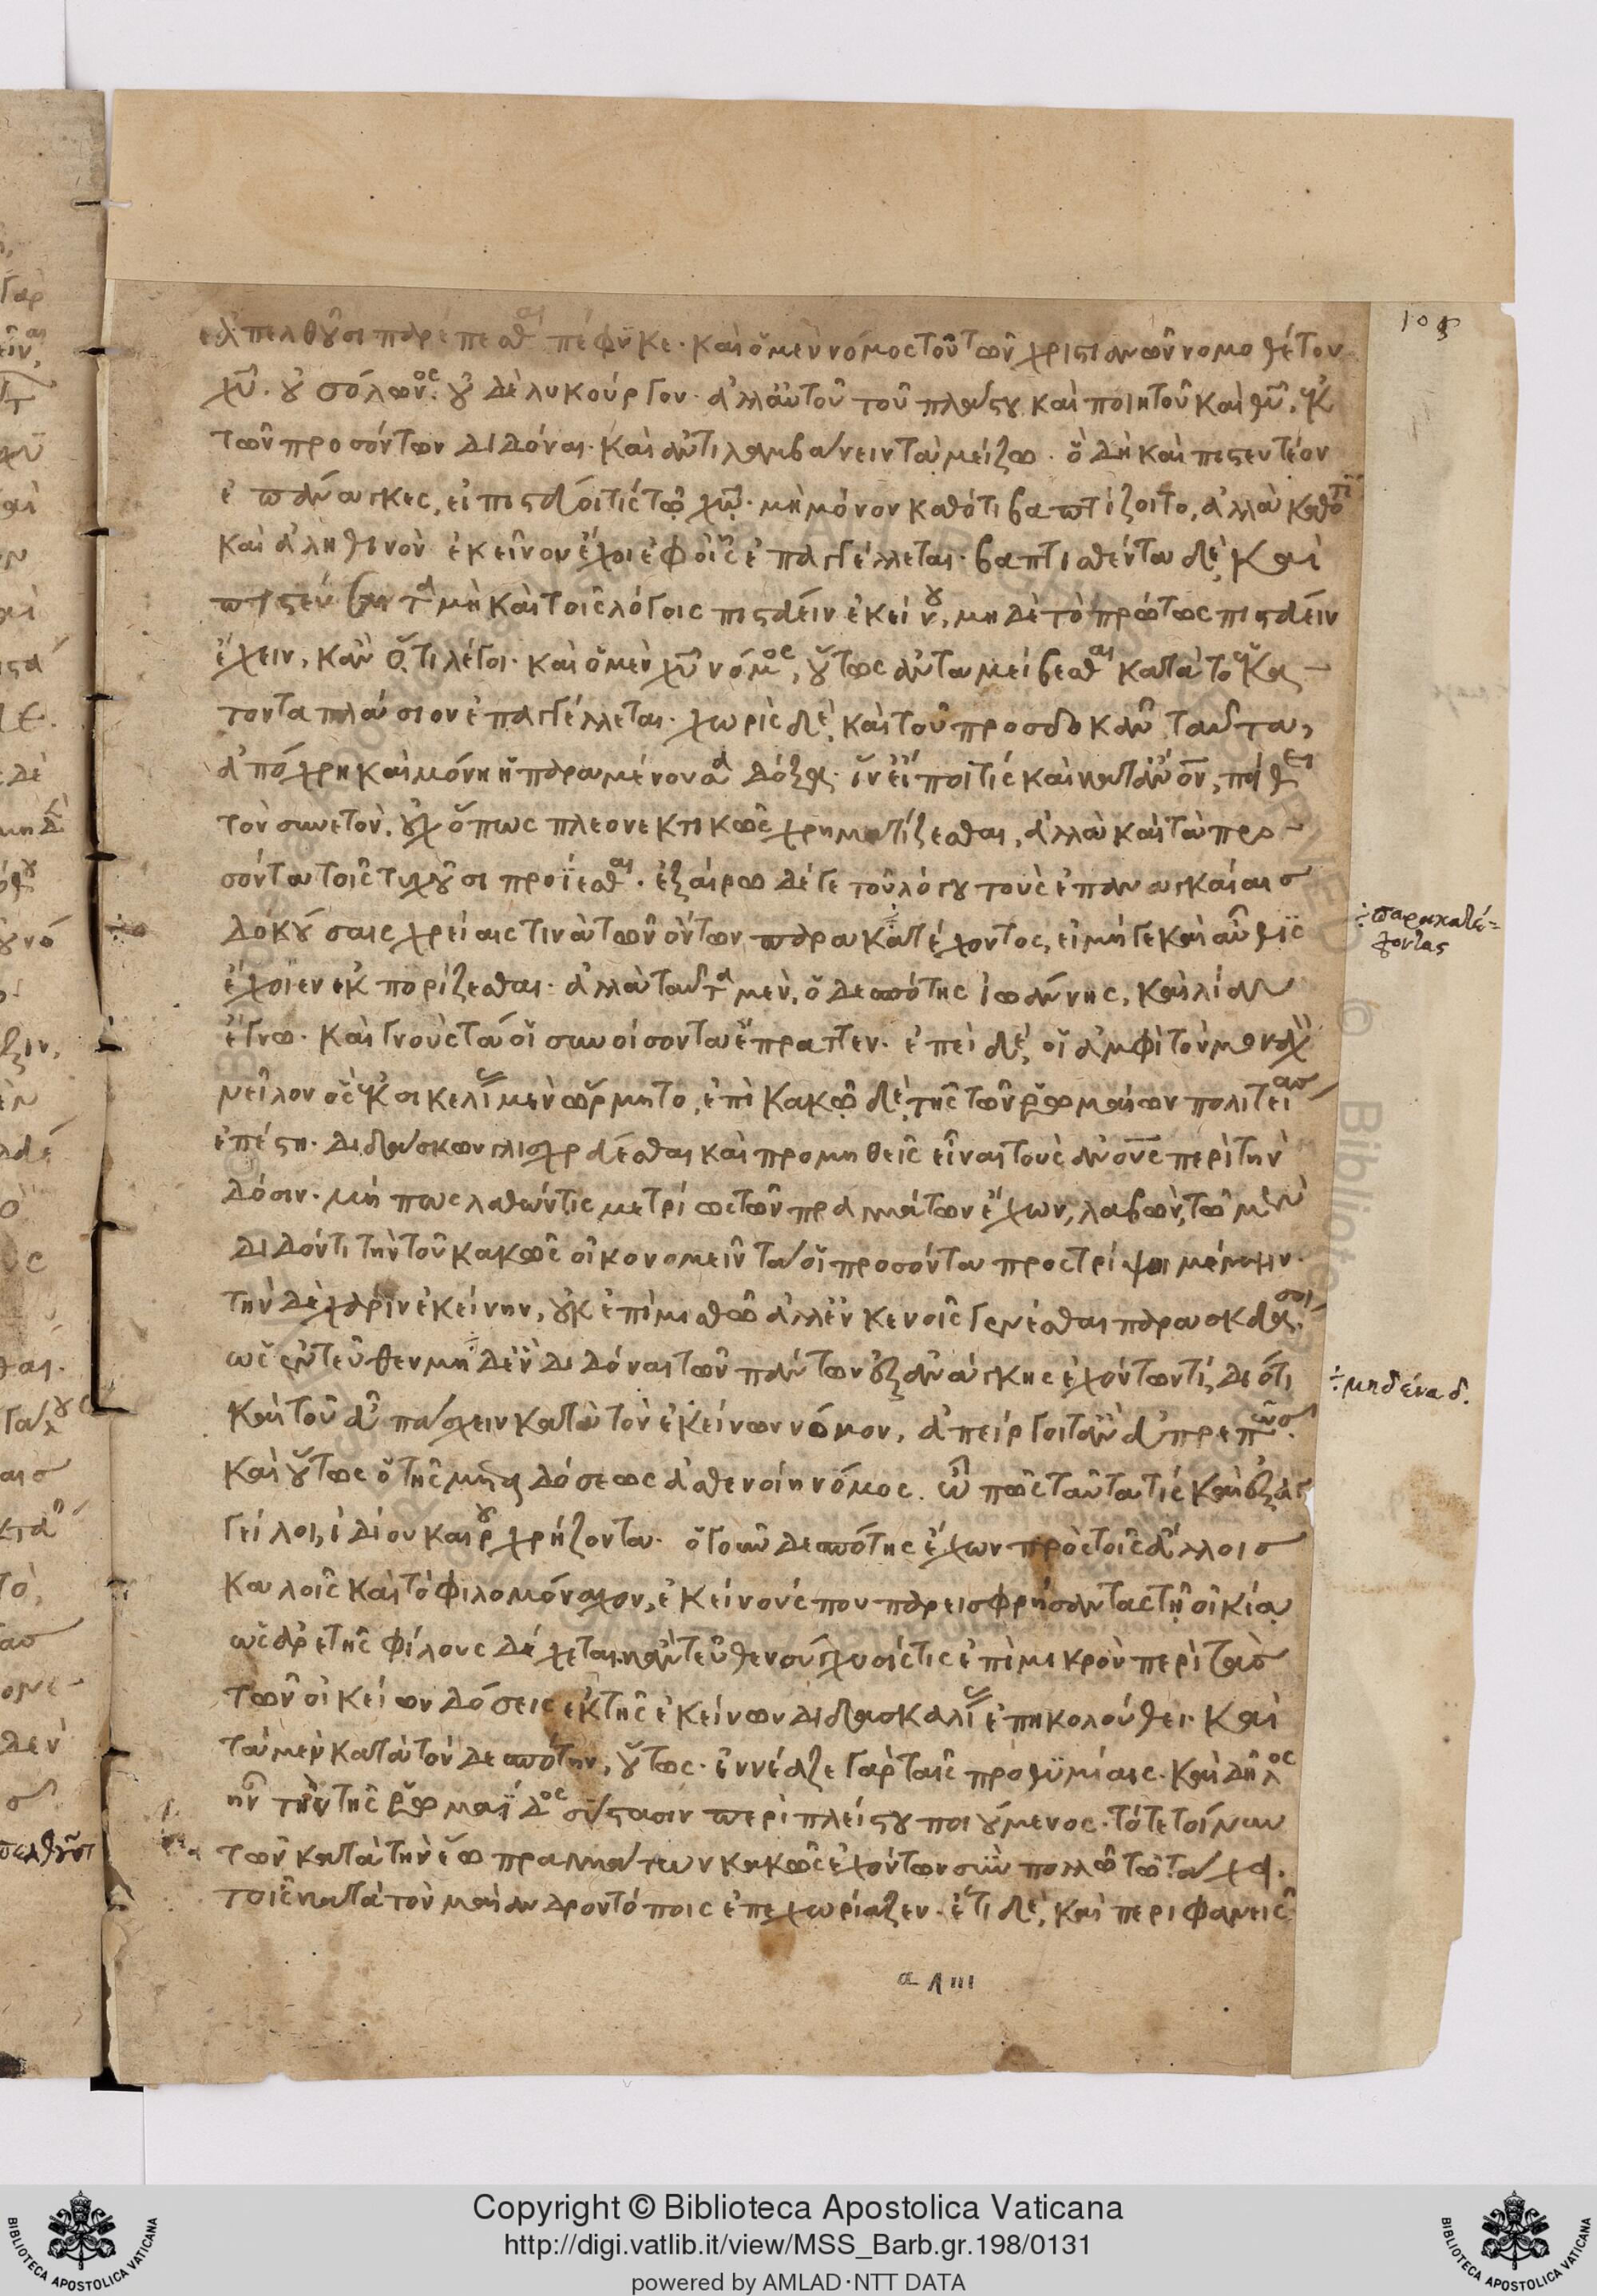 105
ἐξαπελθοῦσι παρέπεσθαι πέφυκε. καὶ ὁ μὲν νόμος τοῦ τῶν χριστιανῶν νομοθέτου
χυ. οὐ σόλωνος. οὐδὲ λυκούργου. ἀλλ' αὐτοῦ τοῦ πλάστου καὶ ποιητοῦ καὶ θυ. ἐκ
τῶν προσόντων διδόναι. καὶ ἀντιλαμβάνειν τὰ μείζω. ὃ δὴ καὶ πιστευτέον
ἐπάναγκες, εἰ πιστεύοι τις τῷ χῷ. μὴ μόνον καθότι βαπτίζοιτο, ἀλλὰ καθότι
καὶ ἀληθινὸν ἐκεῖνον ἔχοι ἐφ' οἷς ἐπαγγέλλεται. βαπτισθέντα δὲ καὶ
πιστεύσαντα μὴ καὶ τοῖς λόγοις πιστεύειν ἐκείνου, μηδὲ τὸ πρώτως πιστεύειν
ἔχειν, κἂν ὅτι λέγοι. καὶ ὁ μὲν χυ νόμος, οὕτως ἀνταμείβεσθαι κατὰ τὸ ἑκα
τονταπλάσιον ἐπαγγέλλεται. χωρὶς δὲ καὶ τοῦ προσδοκᾶν ταῦτα,
ἀπόχρη καὶ μόνη ἡ παραμένουσα δόξα. ἵν' εἴποι τις καὶ κατ' ἄνον, πείθειν
τὸν συνετὸν, οὐχ ὅπως πλεονεκτικῶς χρηματίζεσθαι, ἀλλὰ καὶ τὰ προ
σόντα τοῖς τυχοῦσι προΐεσθαι. ἐξαίρω δέ γε τοῦ λόγου τοὺς ἐπ' ἀναγκαίαις
δοκούσαις χρείαις τινὰ τῶν ὄντων παρακατέχοντος, εἰ μή γε καὶ αὖθις
ἔχοιεν ἐκπορίζεσθαι. ἀλλὰ ταῦτα μὲν, ὁ δεσπότης ἰωάννης, καὶ λίαν
ἔγνω. καὶ γνοὺς τά οἱ συνοίσοντα ἔπραττεν. ἐπεὶ δὲ οἱ ἀμφὶ τὸν μοναχὸν
νεῖλον ὃς ἐκ σικελίας μὲν ὥρμητο, ἐπὶ κακῷ δὲ τῆς τῶν ῥωμαίων πολιτείας
ἐπέστη. διδάσκων γλισχρεύεσθαι καὶ προμηθεῖς εἶναι τοὺς ἀνους περὶ τὴν
δόσιν. μή πως λαθών τις μετρίως τῶν πραγμάτων ἔχων, λαβὼν, τῷ μὲν
διδόντι τὴν τοῦ κακῶς οἰκονομεῖν τά οἱ προσόντα προστρίψει μέμψιν.
τὴν δὲ χάριν ἐκείνην, οὐκ ἐπὶ μισθῷ ἀλλ' ἐν κενοῖς γενέσθαι παρασκευάσει.
ὡς ἐντεῦθεν μηδὲν διδόναι τῶν πάντων ἐξ ἀνάγκης ἐχόντων τί, διότι
καὶ τοῦ εὖ πάσχειν κατὰ τὸν ἐκείνων νόμον, ἀπείργοιτ' ἂν εὐπρεπῶς.
καὶ οὕτως ὁ τῆς μεταδόσεως ἀσθενοίη νόμος. ὢ πῶς ταῦτα τίς καὶ ἐξαγ
γείλοι, ἰδίου καιροῦ χρήζοντα. ὁ γοῦν δεσπότης ἔχων πρὸς τοῖς ἄλλοις
καλοῖς καὶ τὸ φιλομόναχον, ἐκείνους που παρεισφρήσαντας τῇ οἰκίᾳ
ὡς ἀρετῆς φίλους δέχεται. κἀντεῦθεν σύγχυσίς τις ἐπὶ μικρὸν περὶ τὰς
τῶν οἰκείων δόσεις ἐκ τῆς ἐκείνων διδασκαλίας ἐπηκολούθει. καὶ
τὰ μὲν κατὰ τὸν δεσπότην, οὕτως. ἐννέαζε γὰρ ταῖς προθυμίαις. καὶ δῆλος
ἦν τὴν τῆς ῥωμαΐδος σύστασιν περὶ πλείστου ποιούμενος. τότε τοίνυν
τῶν κατὰ τὴν ἕω πραγμάτων κακῶς ἐχόντων σὺν πολλῷ τῷ τάχει.
τοῖς κατὰ τὸν μαίανδρον τόποις ἐπεχωρίαζεν. ἔτι δὲ καὶ περιφανεῖς
÷ παρακατέ=
χοντας
÷ μηδένα δ.
Copyright © Biblioteca Apostolica Vaticana
http://digi.vatlib.it/view/MSS_Barb.gr.198/0131
powered by AMLAD·NTT DATA
BIBLIOTECA APOSTOLICA VATICANA
BIBLIOTECA APOSTOLICA VATICANA